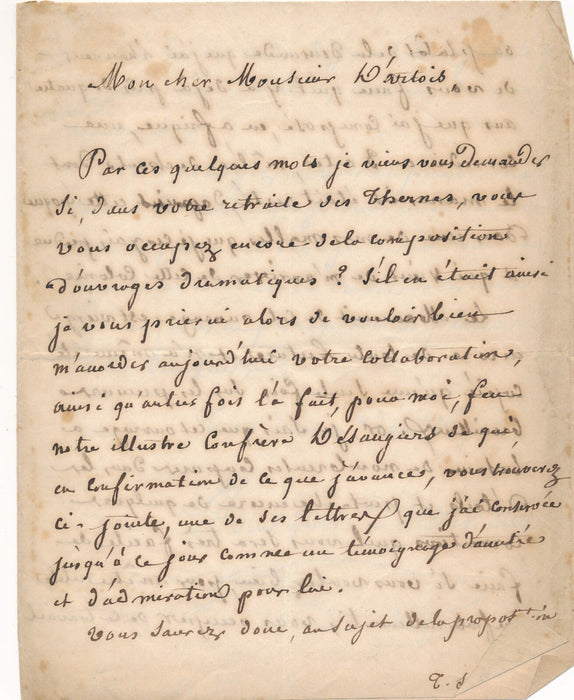 Mon cher Monsieur D'
Par ces quelques mots je viens vous demander
si, dans votre retraite des Thernes, vous
vous occupez encore de la composition
d'ouvrages dramatiques? S'il en était ainsi
je vous prierai alors de vouloir bien
m'accorder aujourd'hui votre collaboration,
ainsi qu'autrefois l'a fait, pour moi, feu
notre illustre Confrère Désaugiers de qui,
en confirmation de ce que j'avances, vous trouverez
ci-jointe, une de ses lettres que j'ai conservée
jusqu'à ce jour comme un témoignage d'amitié
et d'admiration pour lui.
Vous saurez donc, au sujet de la propost.on
T. S